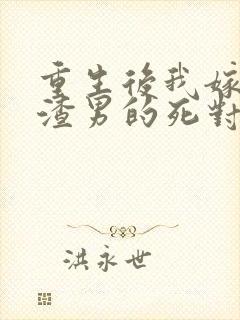 重生後我嫁
渣男的死對
洪永世